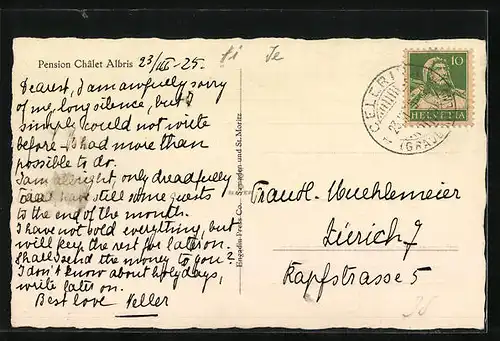 Pension Châlet Albris 23/III - 25.
Dearest, I am awfully sorry
of my long silence, but I
simple could not write
before - I had more than
possible to do.
I am allright, only dreadfully
tired have still some guests
to the end of the month.
I have not sold everything, but
will keep the rest for later on.
Shall I send the money to you?
I don't know about holydays,
write later on.
Best love Neller
Engadin Press Co., Samaden und St. Moritz
10
HELVETIA
CELERINA
(GRAUB
Frautl. Muehlemeier
Zürich 7
Kapfstrasse 5